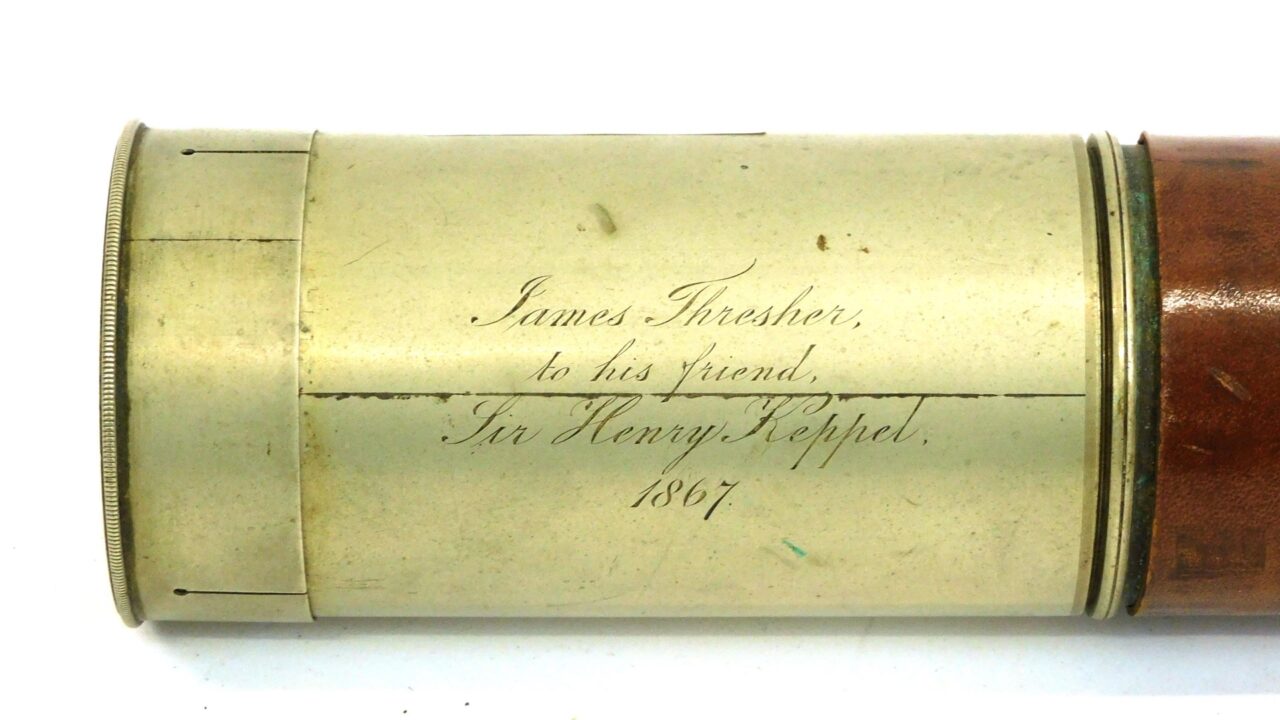 James Thresher,
to his friend,
Sir Henry Keppel,
1867.